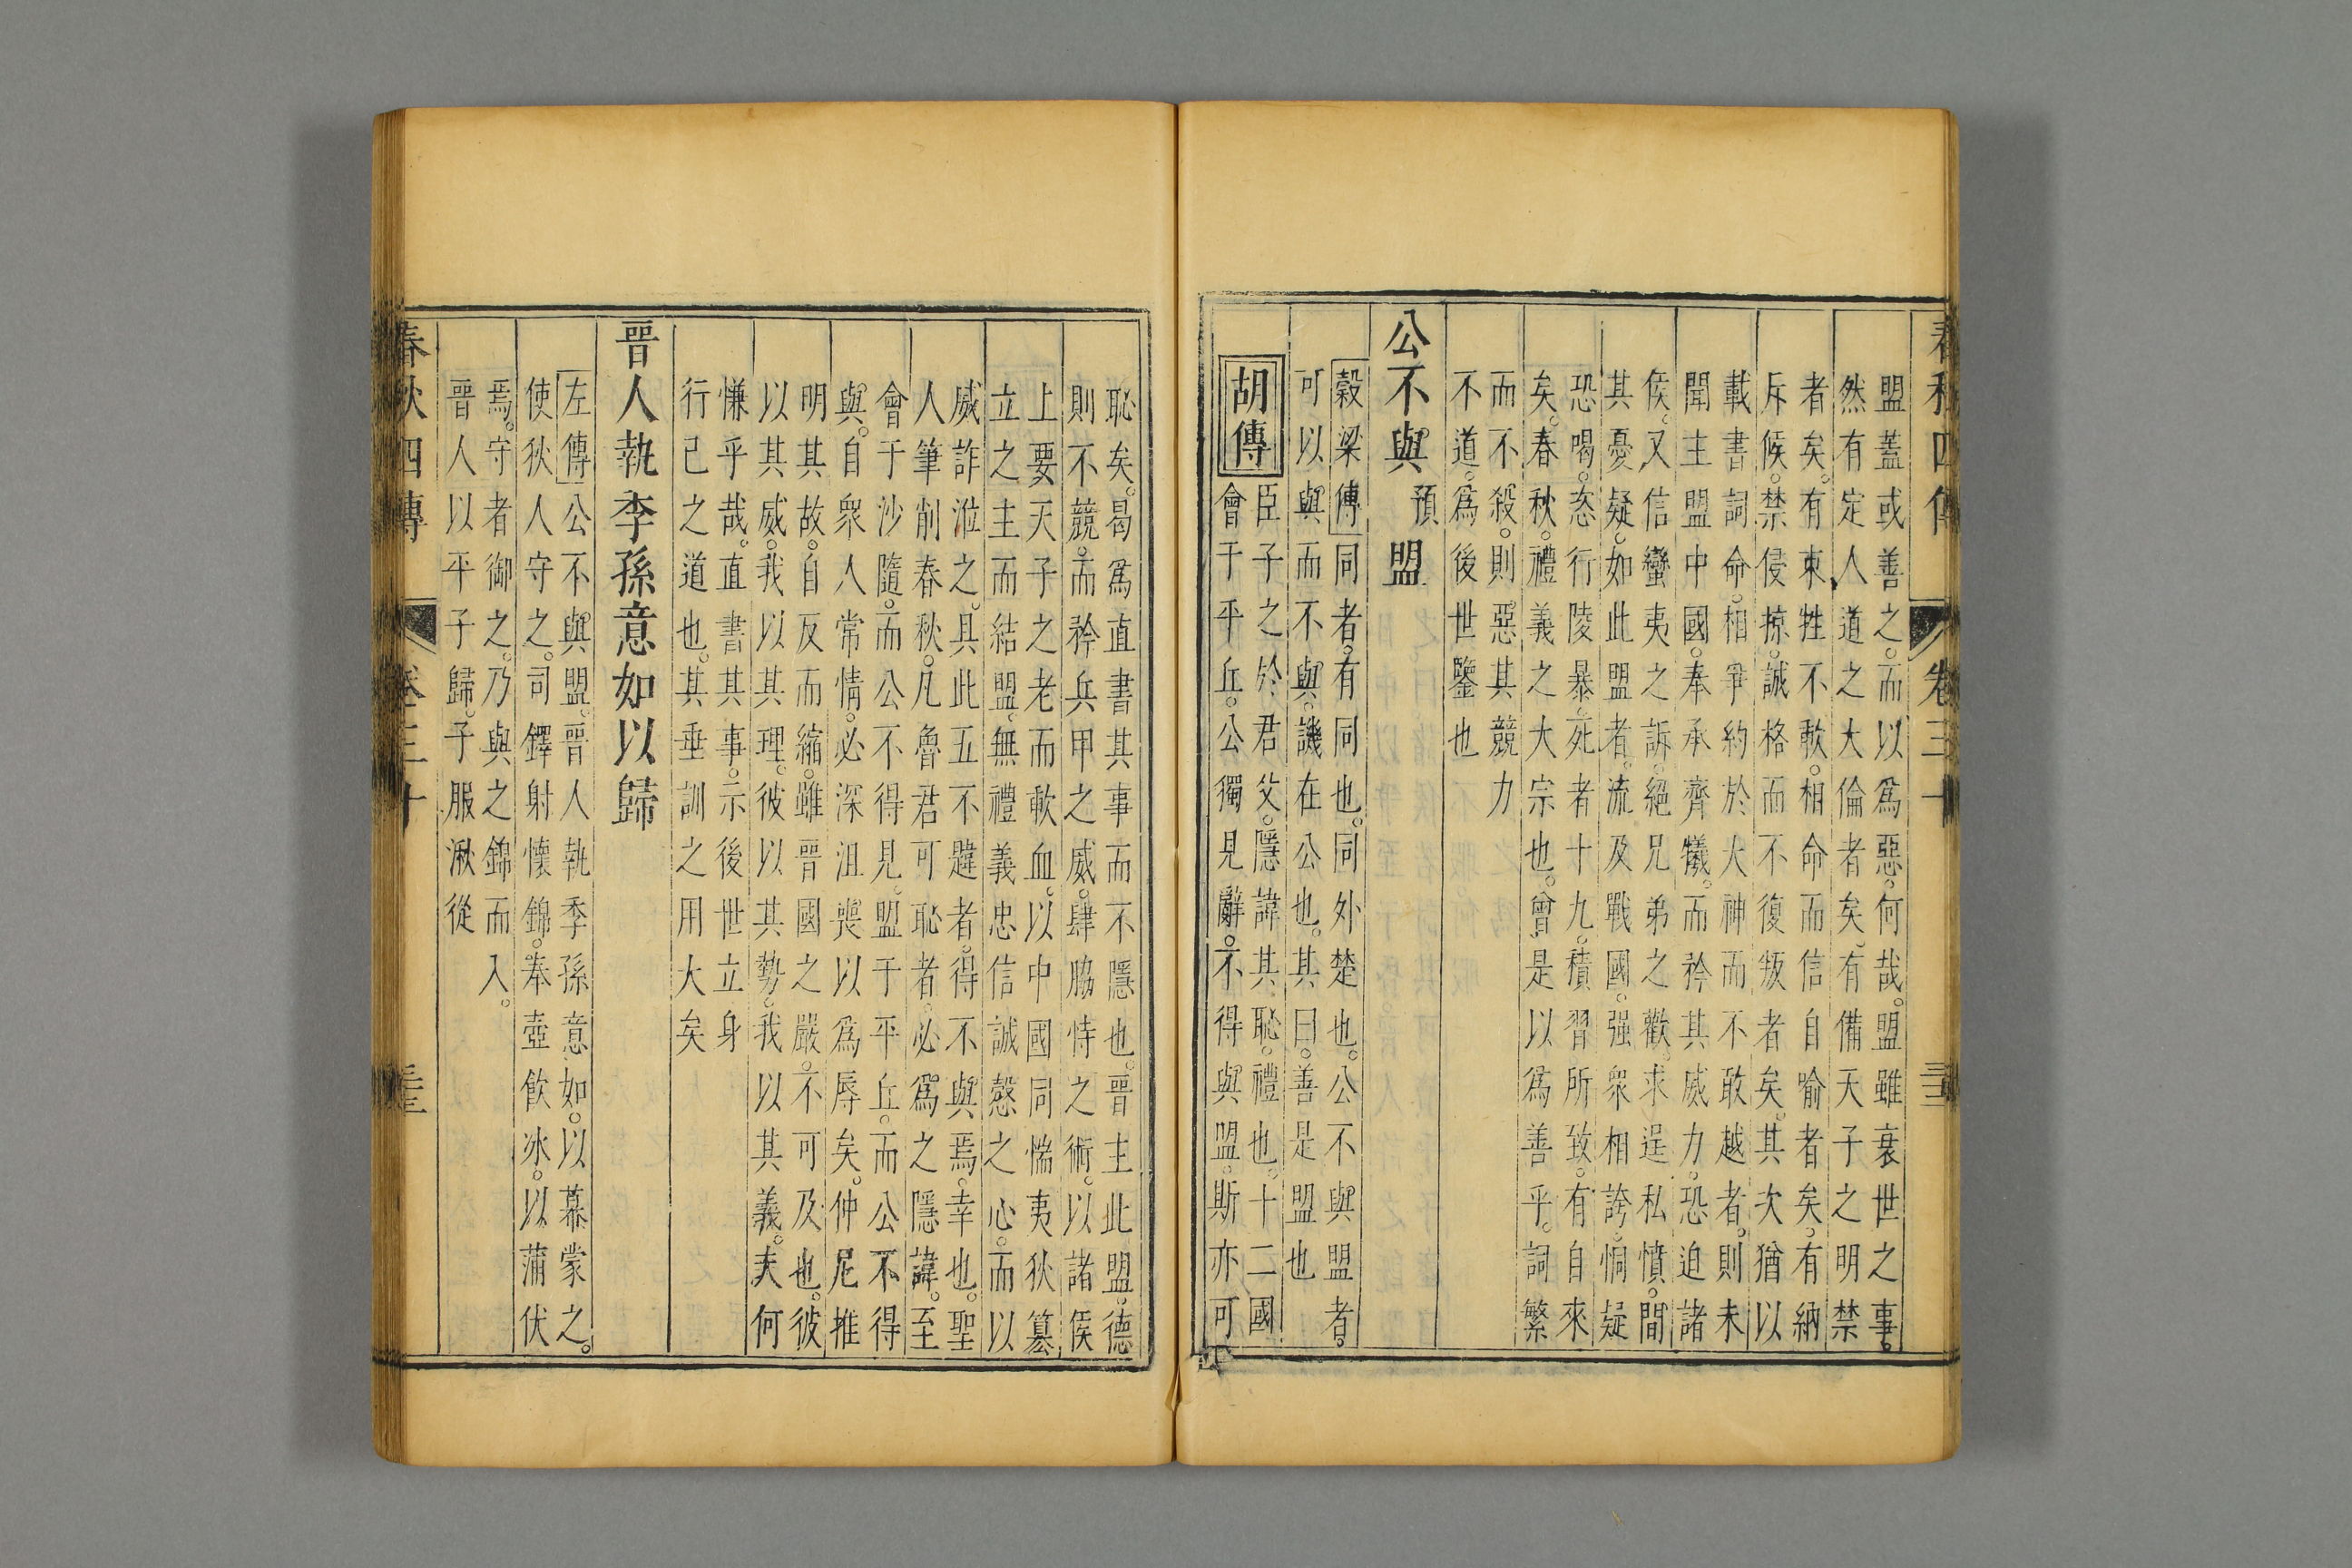 春秋四傳 卷三十 三十三
盟蓋或善之。而以爲惡。何哉。盟雖衰世之事。
然有定人道之大倫者矣。有備天子之明禁
者矣。有束牲不歃。相命而信自喻者矣。有納
斥候。禁侵掠。誠格而不復叛者矣。其次猶以
載書詞命。相爭約於大神而不敢越者。則未
聞主盟中國。奉承齊犧。而矜其威力。恐迫諸
侯。又信蠻夷之訴。絕兄弟之歡。求逞私憤。間
其憂疑。如此盟者。流及戰國。强衆相誇。恫疑
恐喝。恣行陵暴。死者十九。積習所致。有自來
矣。春秋。禮義之大宗也。曾是以爲善乎。詞繁
而不殺。則惡其競力
不道。爲後世鑒也
公不與預盟
穀梁傳同者。有同也。同外楚也。公不與盟者。
可以與而不與。譏在公也。其曰。善是盟也
胡傳
臣子之於君父。隱諱其恥。禮也。十二國
會于平丘。公獨見辭。不得與盟。斯亦可
恥矣。曷爲直書其事而不隱也。晋主此盟。德
則不競。而矜兵甲之威。肆脇恃之術。以諸侯
上要天子之老而歃血。以中國同惴夷狄簒
立之主而結盟。無禮義忠信誠慤之心。而以
威詐涖之。具此五不韙者。得不與焉。幸也。聖
人筆削春秋。凡魯君可恥者。必爲之隱諱。至
會于沙隨。而公不得見。盟于平丘。而公不得
與。自衆人常情。必深沮喪以爲辱矣。仲尼推
明其故。自反而縮。雖晋國之嚴。不可及也。彼
以其威。我以其理。彼以其勢。我以其義。夫何
慊乎哉。直書其事。示後世立身
行己之道也。其垂訓之用大矣
晋人執季孫意如以歸
左傳公不與盟。晋人執季孫意如。以幕蒙之。
使狄人守之。司鐸射懷錦。奉壺飲冰。以蒲伏
焉。守者御之。乃與之錦而入。
晋人以平子歸。子服湫從
春秋四傳 卷三十 三十三